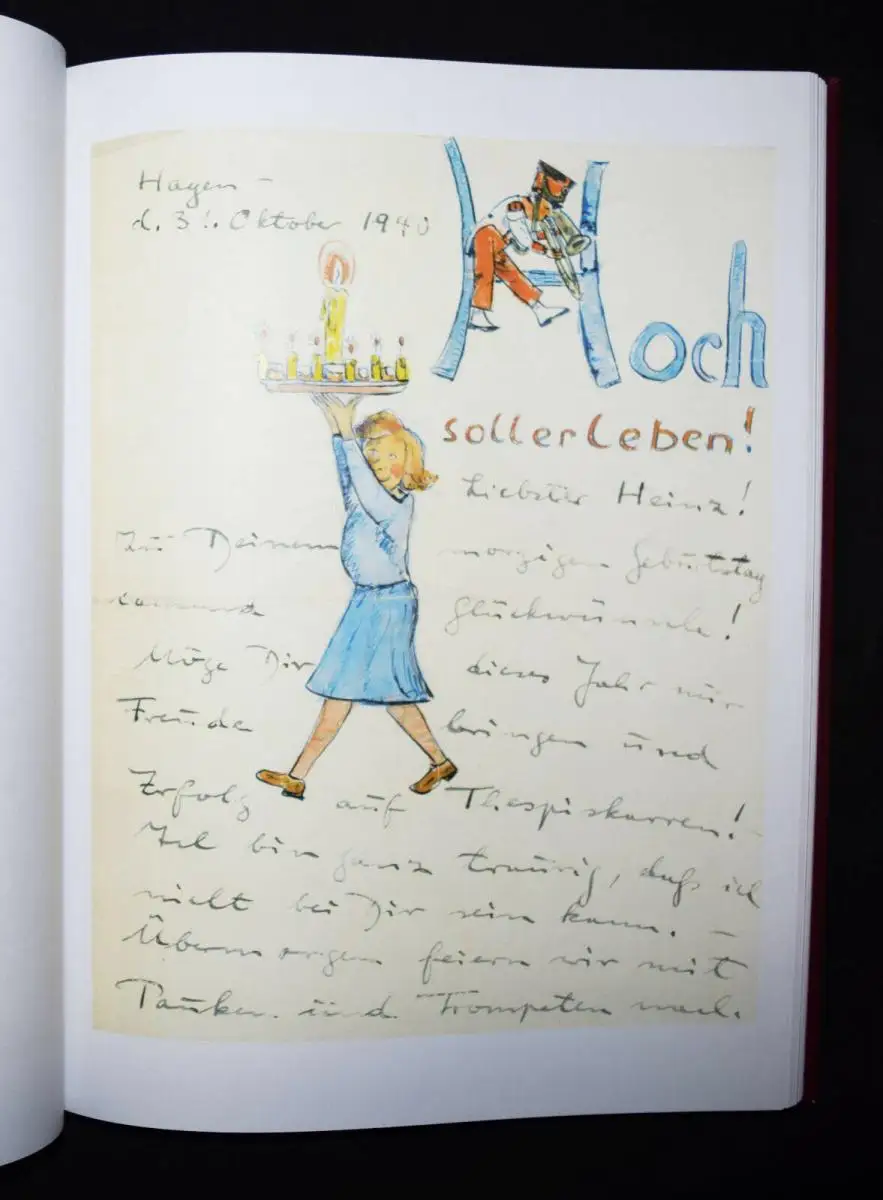 Hagen –
d. 31. Oktober 1940
Hoch
soll er leben!
Liebster Heinz!
Zu Deinem morgigen Geburtstag
tausend Glückwünsche!
Möge Dir dieses Jahr nur
Freude bringen und
Erfolg auf Thespiskarren! –
Ich bin ganz traurig, daß ich
nicht bei Dir sein kann. –
Übermorgen feiern wir mit
Pauken und Trompeten nach.